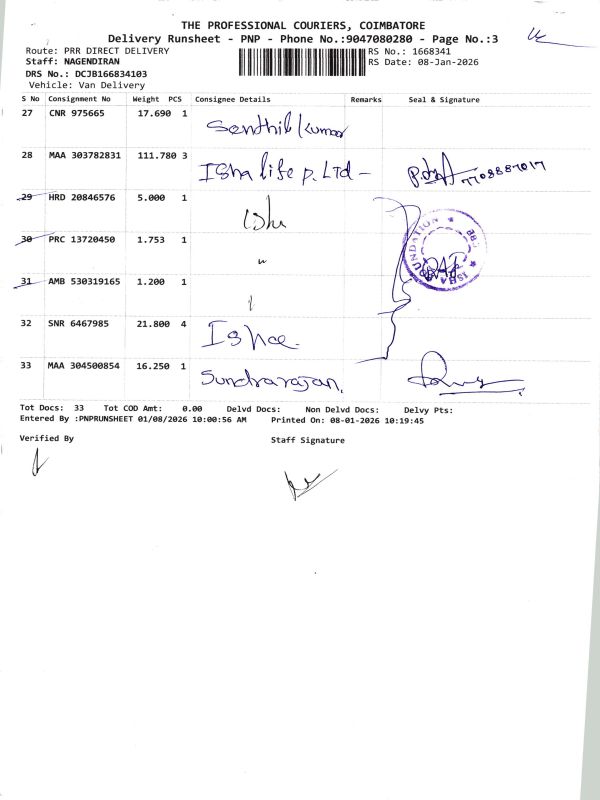 THE PROFESSIONAL COURIERS, COIMBATORE
Delivery Runsheet - PNP - Phone No.:9047080280 - Page No.:3
Route: PRR DIRECT DELIVERY
RS No.: 1668341
Staff: NAGENDIRAN
RS Date: 08-Jan-2026
DRS No.: DCJB166834103
Vehicle: Van Delivery
S No Consignment No Weight PCS Consignee Details Remarks Seal & Signature
27 CNR 975665 17.690 1 Senthil Kumar
28 MAA 303782831 111.780 3 Isha life P. Ltd - 7708887017
29 HRD 20846576 5.000 1
30 PRC 13720450 1.753 1 "
31 AMB 530319165 1.200 1
ISHA FOUNDATION ★ CBE ★
32 SNR 6467985 21.800 4 Isha.
33 MAA 304500854 16.250 1 Sundrarajan.
Tot Docs: 33 Tot COD Amt: 0.00 Delvd Docs: Non Delvd Docs: Delvy Pts:
Entered By :PNPRUNSHEET 01/08/2026 10:00:56 AM Printed On: 08-01-2026 10:19:45
Verified By Staff Signature